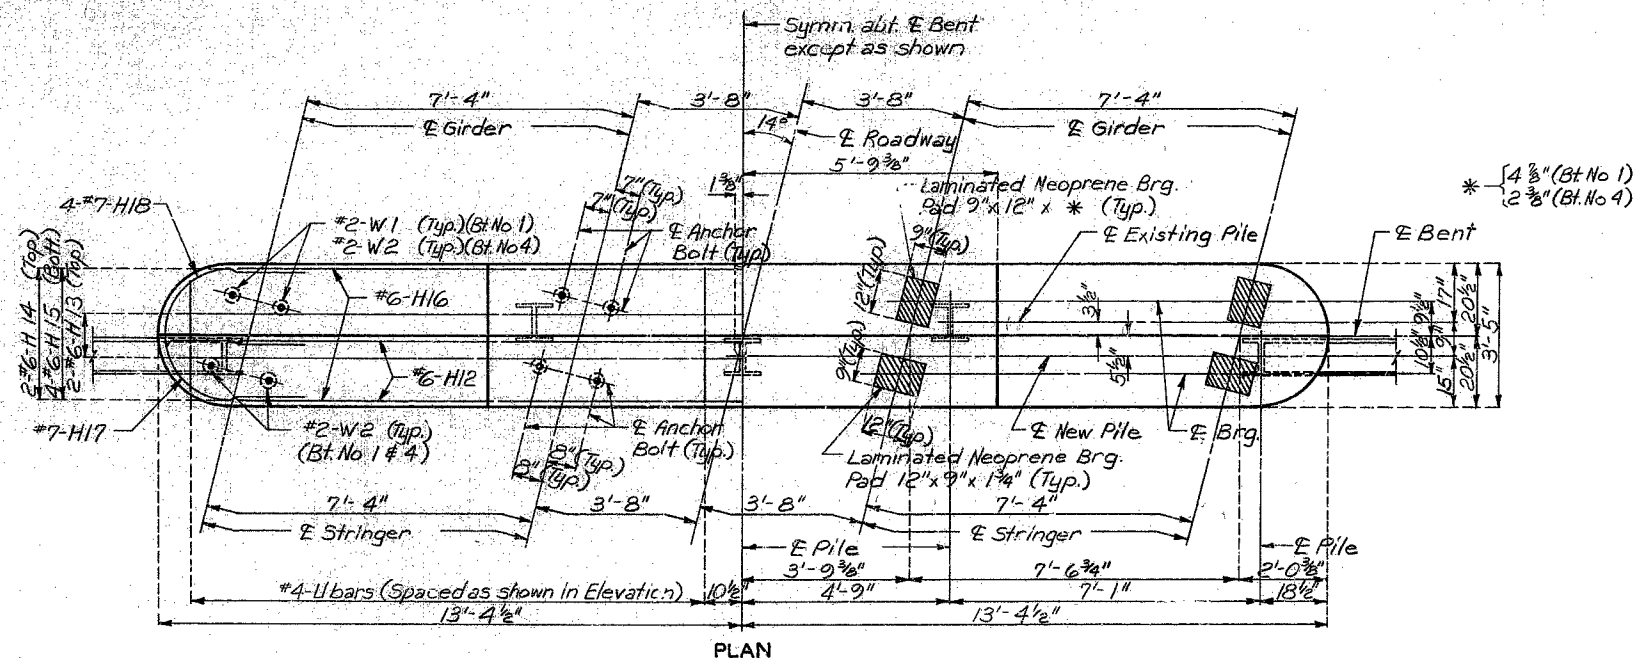 Symm. abt. ℄ Bent
except as shown
7'-4"
3'-8"
3'-8"
7'-4"
℄ Girder
14°
℄ Roadway
℄ Girder
5'-9⅜"
1⅜"
7"(Typ.)
7"(Typ.)
Laminated Neoprene Brg.
Pad 9"x 12" x * (Typ.)
* 4⅞"(Bt. No 1)
2⅜"(Bt. No 4)
4-#7-H18
#2-W1 (Typ.)(Bt. No 1)
#2-W2 (Typ.)(Bt. No 4)
℄ Anchor
Bolt (Typ.)
9"(Typ.)
℄ Existing Pile
℄ Bent
2-#6-H14 (Top)
4-#6-H15 (Bott.)
2-#6-H13 (Top)
#6-H16
12"(Typ.)
3½"
9½"
17"
20½"
#6-H12
9"(Typ.)
5½"
10½"
9"
15"
20½"
3'-5"
#7-H17
#2-W2 (Typ.)
(Bt. No 1 & 4)
℄ Anchor
Bolt (Typ.)
12"(Typ.)
℄ New Pile
℄ Brg.
8"(Typ.)
8"(Typ.)
Laminated Neoprene Brg.
Pad 12"x 9"x 1¾" (Typ.)
7'-4"
3'-8"
3'-8"
7'-4"
℄ Stringer
℄ Stringer
℄ Pile
℄ Pile
3'-9⅜"
7'-6¾"
2'-0⅜"
#4-U bars (Spaced as shown in Elevation)
10½"
4'-9"
7'-1"
18½"
13'-4½"
13'-4½"
PLAN